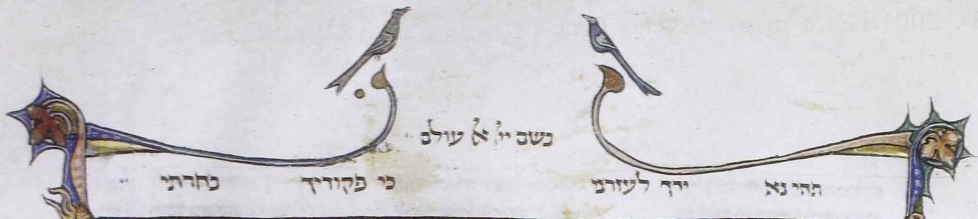 בשם ייי אל עולם
תהי נא ידך לעזרני כי פקודיך בחרתי